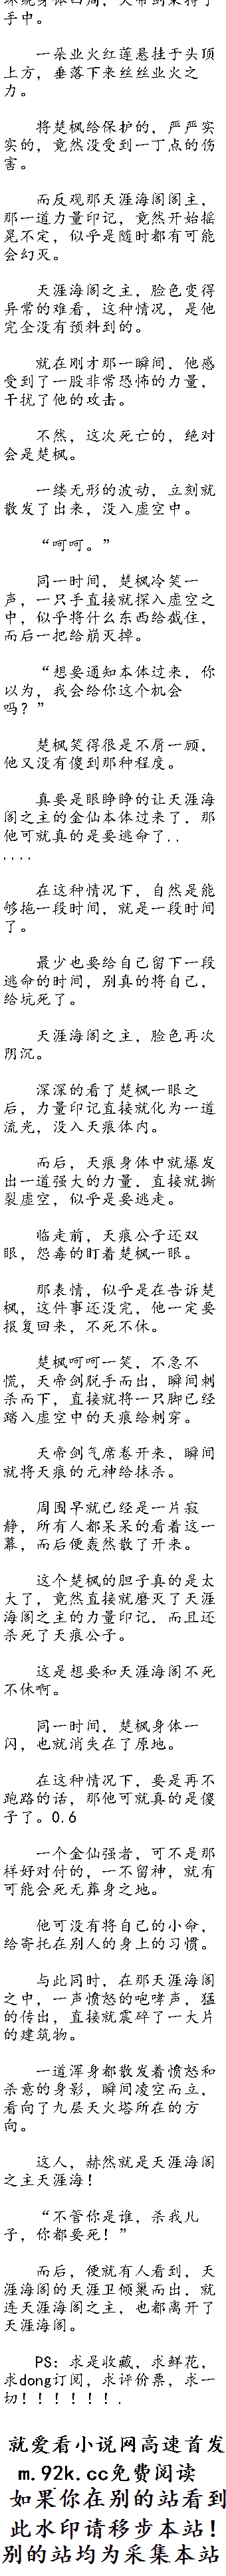 手中。
一朵业火红莲悬挂于头顶
上方，垂落下来丝丝业火之
力。
将楚枫给保护的，严严实
实的，竟然没受到一丁点的伤
害。
而反观那天涯海阁阁主，
那一道力量印记，竟然开始摇
晃不定，似乎是随时都有可能
会幻灭。
天涯海阁之主，脸色变得
异常的难看，这种情况，是他
完全没有预料到的。
就在刚才那一瞬间，他感
受到了一股非常恐怖的力量，
干扰了他的攻击。
不然，这次死亡的，绝对
会是楚枫。
一缕无形的波动，立刻就
散发了出来，没入虚空中。
“呵呵。”
同一时间，楚枫冷笑一
声，一只手直接就探入虚空之
中，似乎将什么东西给截住，
而后一把给崩灭掉。
“想要通知本体过来，你
以为，我会给你这个机会
吗？”
楚枫笑得很是不屑一顾，
他又没有傻到那种程度。
真要是眼睁睁的让天涯海
阁之主的金仙本体过来了，那
他可就真的是要逃命了..
....
在这种情况下，自然是能
够拖一段时间，就是一段时间
了。
最少也要给自己留下一段
逃命的时间，别真的将自己，
给坑死了。
天涯海阁之主，脸色再次
阴沉。
深深的看了楚枫一眼之
后，力量印记直接就化为一道
流光，没入天痕体内。
而后，天痕身体中就爆发
出一道强大的力量，直接就撕
裂虚空，似乎是要逃走。
临走前，天痕公子还双
眼，怨毒的盯着楚枫一眼。
那表情，似乎是在告诉楚
枫，这件事还没完，他一定要
报复回来，不死不休。
楚枫呵呵一笑，不急不
慌，天帝剑脱手而出，瞬间刺
杀而下，直接就将一只脚已经
踏入虚空中的天痕给刺穿。
天帝剑气席卷开来，瞬间
就将天痕的元神给抹杀。
周围早就已经是一片寂
静，所有人都呆呆的看着这一
幕，而后便轰然散了开来。
这个楚枫的胆子真的是太
大了，竟然直接就磨灭了天涯
海阁之主的力量印记，而且还
杀死了天痕公子。
这是想要和天涯海阁不死
不休啊。
同一时间，楚枫身体一
闪，也就消失在了原地。
在这种情况下，要是再不
跑路的话，那他可就真的是傻
子了。0.6
一个金仙强者，可不是那
样好对付的，一不留神，就有
可能会死无葬身之地。
他可没有将自己的小命，
给寄托在别人的身上的习惯。
与此同时，在那天涯海阁
之中，一声愤怒的咆哮声，猛
的传出，直接就震碎了一大片
的建筑物。
一道浑身都散发着愤怒和
杀意的身影，瞬间凌空而立，
看向了九层天火塔所在的方
向。
这人，赫然就是天涯海阁
之主天涯海！
“不管你是谁，杀我儿
子，你都要死！”
而后，便就有人看到，天
涯海阁的天涯卫倾巢而出，就
连天涯海阁之主，也都离开了
天涯海阁。
PS：求是收藏，求鲜花，
求dong订阅，求评价票，求一
切！！！！！！.
就爱看小说网高速首发
m.92k.cc免费阅读
如果你在别的站看到
此水印请移步本站！
别的站均为采集本站